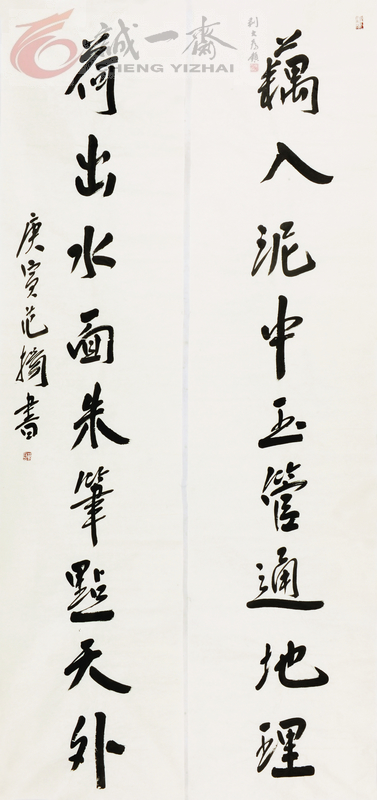 藕入泥中玉管通地理
荷出水面朱筆點天外
庚寅范書
誠一齋
CHENG YIZHAI